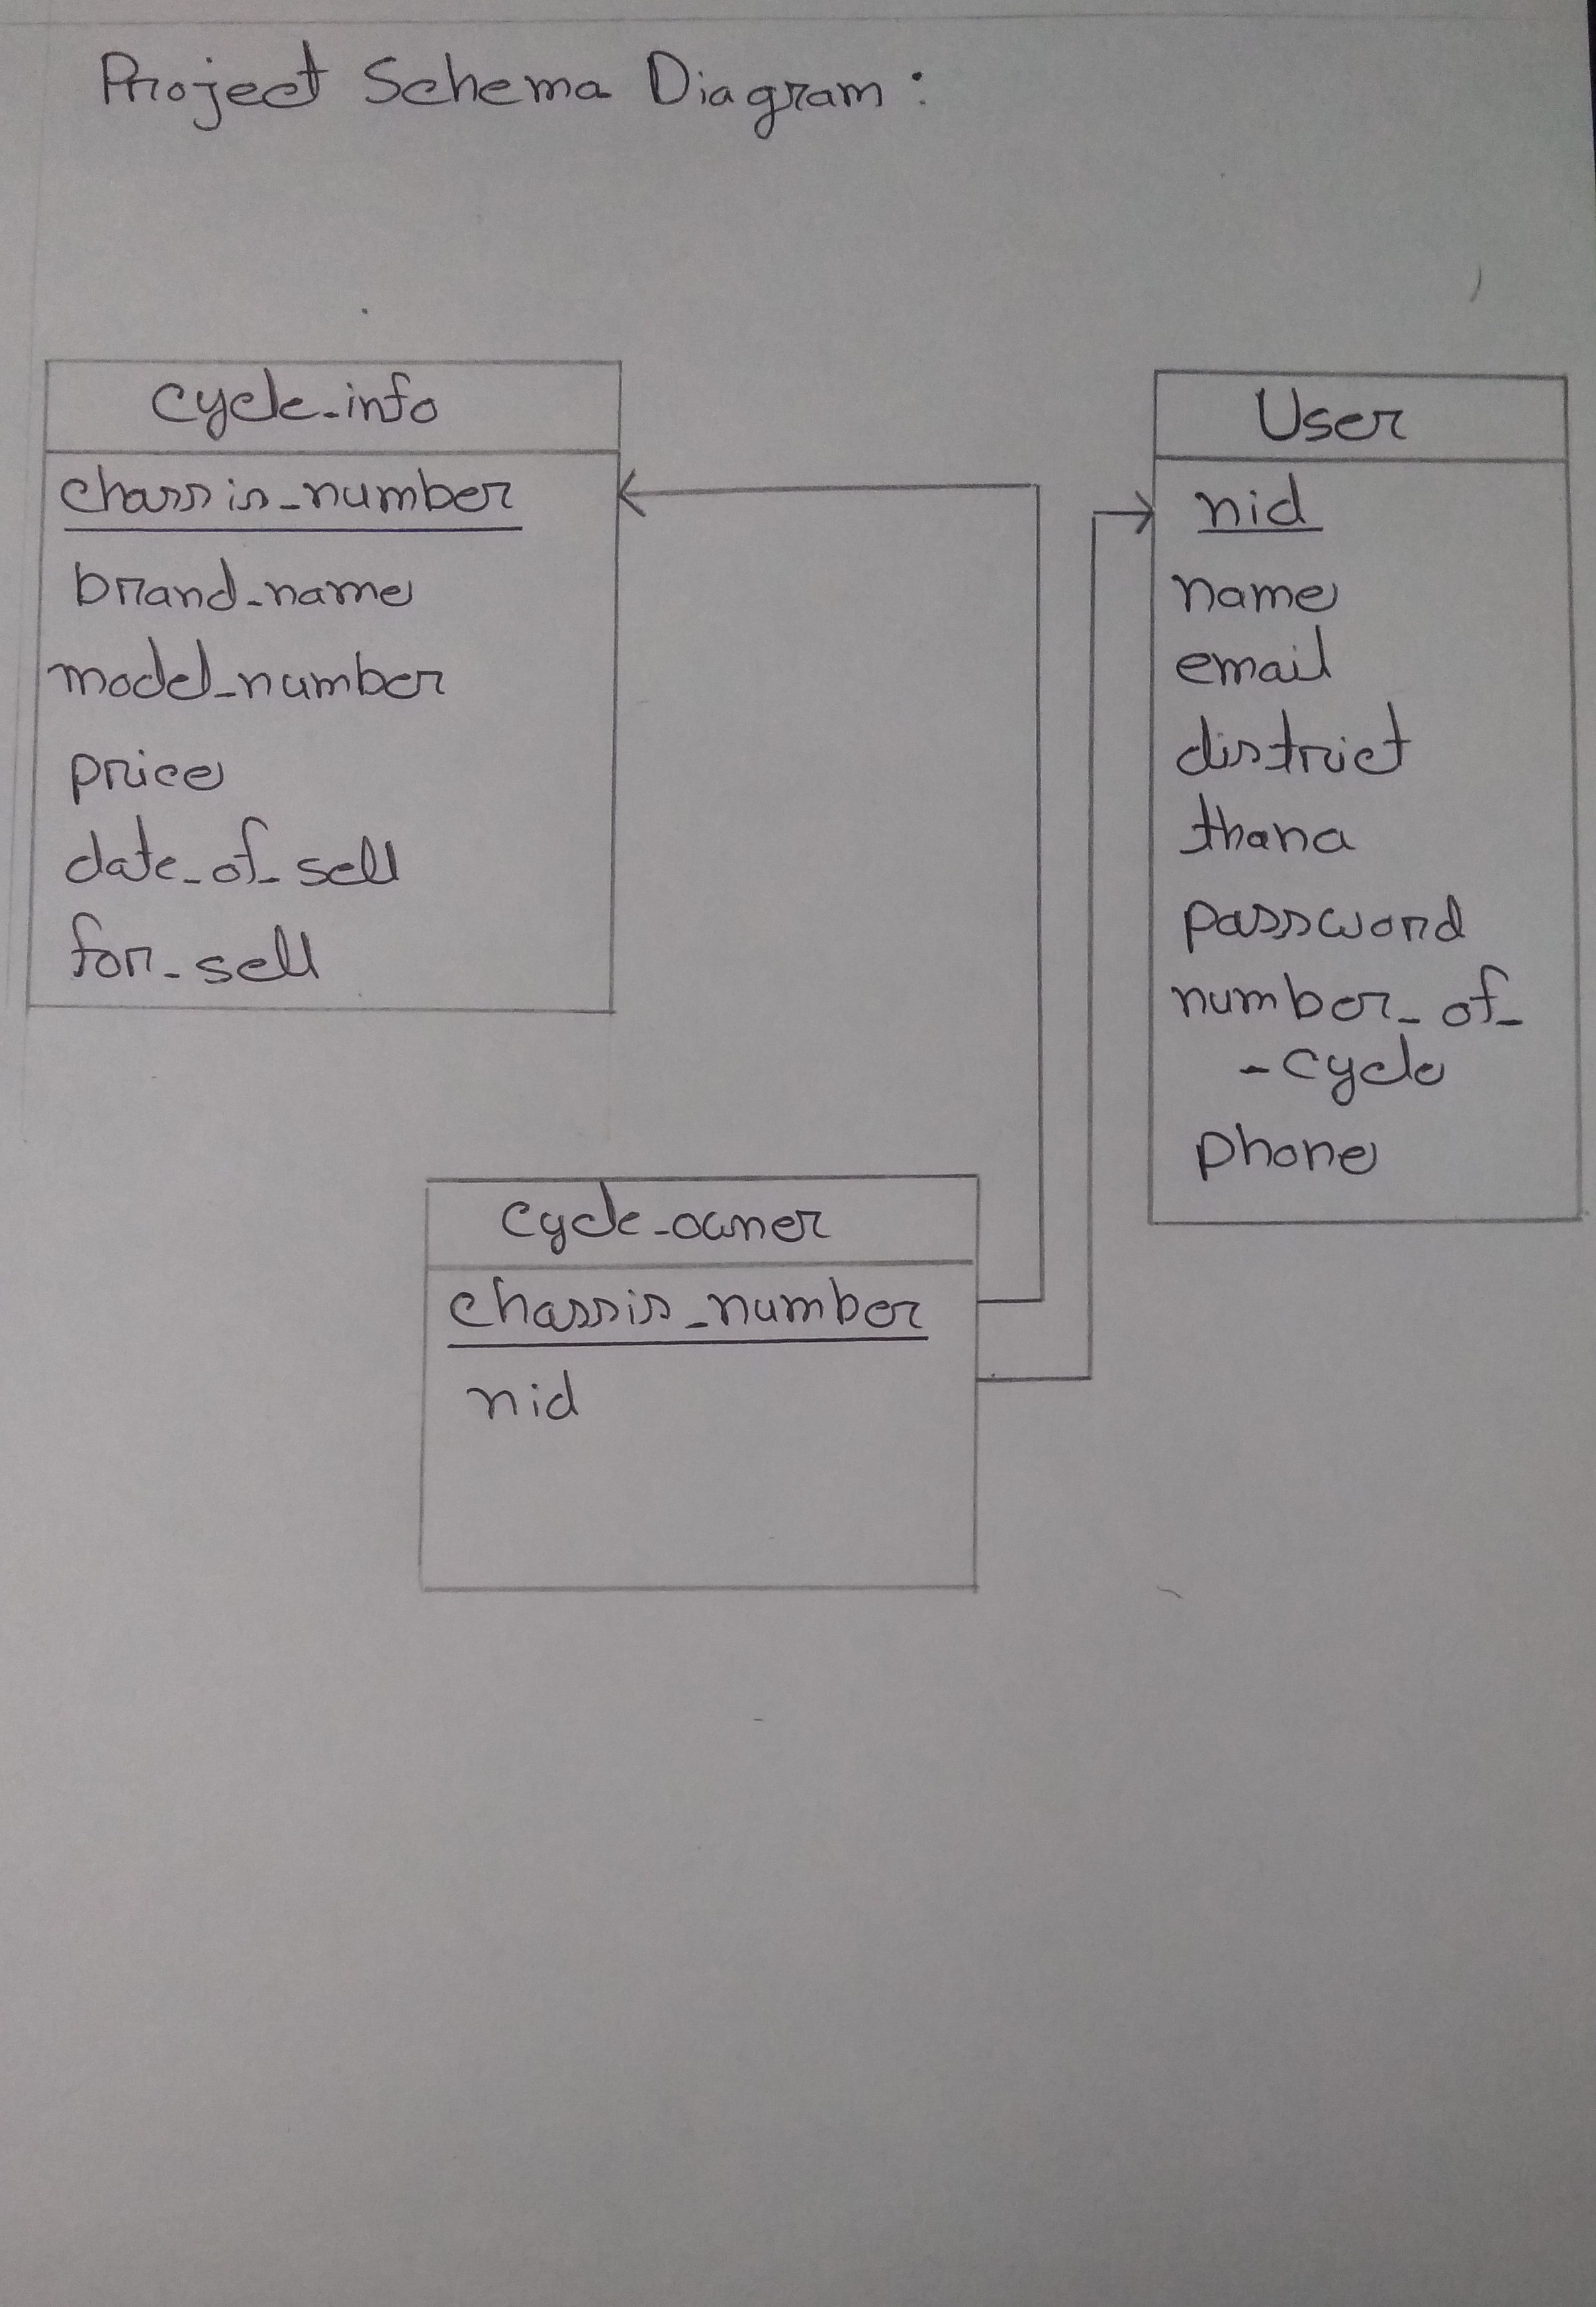 Project Schema Diagram:
cycle_info
chassis_number
brand_name
model_number
price
date_of_sell
for_sell
User
nid
name
email
district
thana
password
number_of_
-cycle
phone
cycle_owner
chassis_number
nid